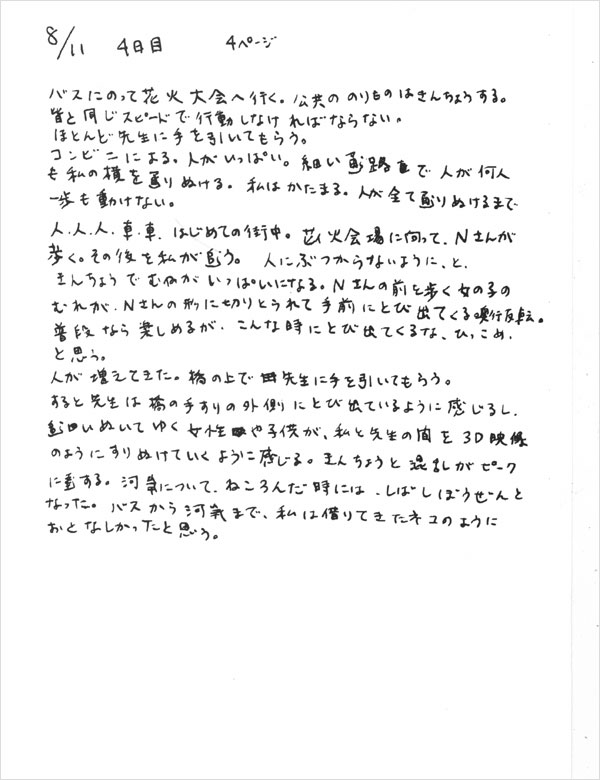 8/11 4日目 4ページ
バスにのって花火大会へ行く。公共ののりものはきんちょうする。
皆と同じスピードで行動しなければならない。
ほとんど先生に手を引いてもらう。
コンビニによる。人がいっぱい。細い通路で人が何人
も私の横を通りぬける。私はかたまる。人が全て通りぬけるまで
一歩も動けない。
人.人.人.車.車.はじめての街中。花火会場に向って、Nさんが
歩く。その後を私が追う。人にぶつからないように、と、
きんちょうでむねがいっぱいになる。Nさんの前を歩く女の子の
むれが、Nさんの形に切りとられて手前にとび出てくる奥行反転。
普段なら楽しめるが、こんな時にとび出てくるな、ひっこめ、
と思う。
人が増えてきた。橋の上で先生に手を引いてもらう。
すると先生は橋の手すりの外側にとび出ているように感じるし、
追いぬいてゆく女性や子供が、私と先生の間を3D映像
のようにすりぬけていくように感じる。きんちょうと混乱がピーク
に達する。河原について、ねころんだ時には、しばしぼうぜんと
なった。バスから河原まで、私は借りてきたネコのように
おとなしかったと思う。